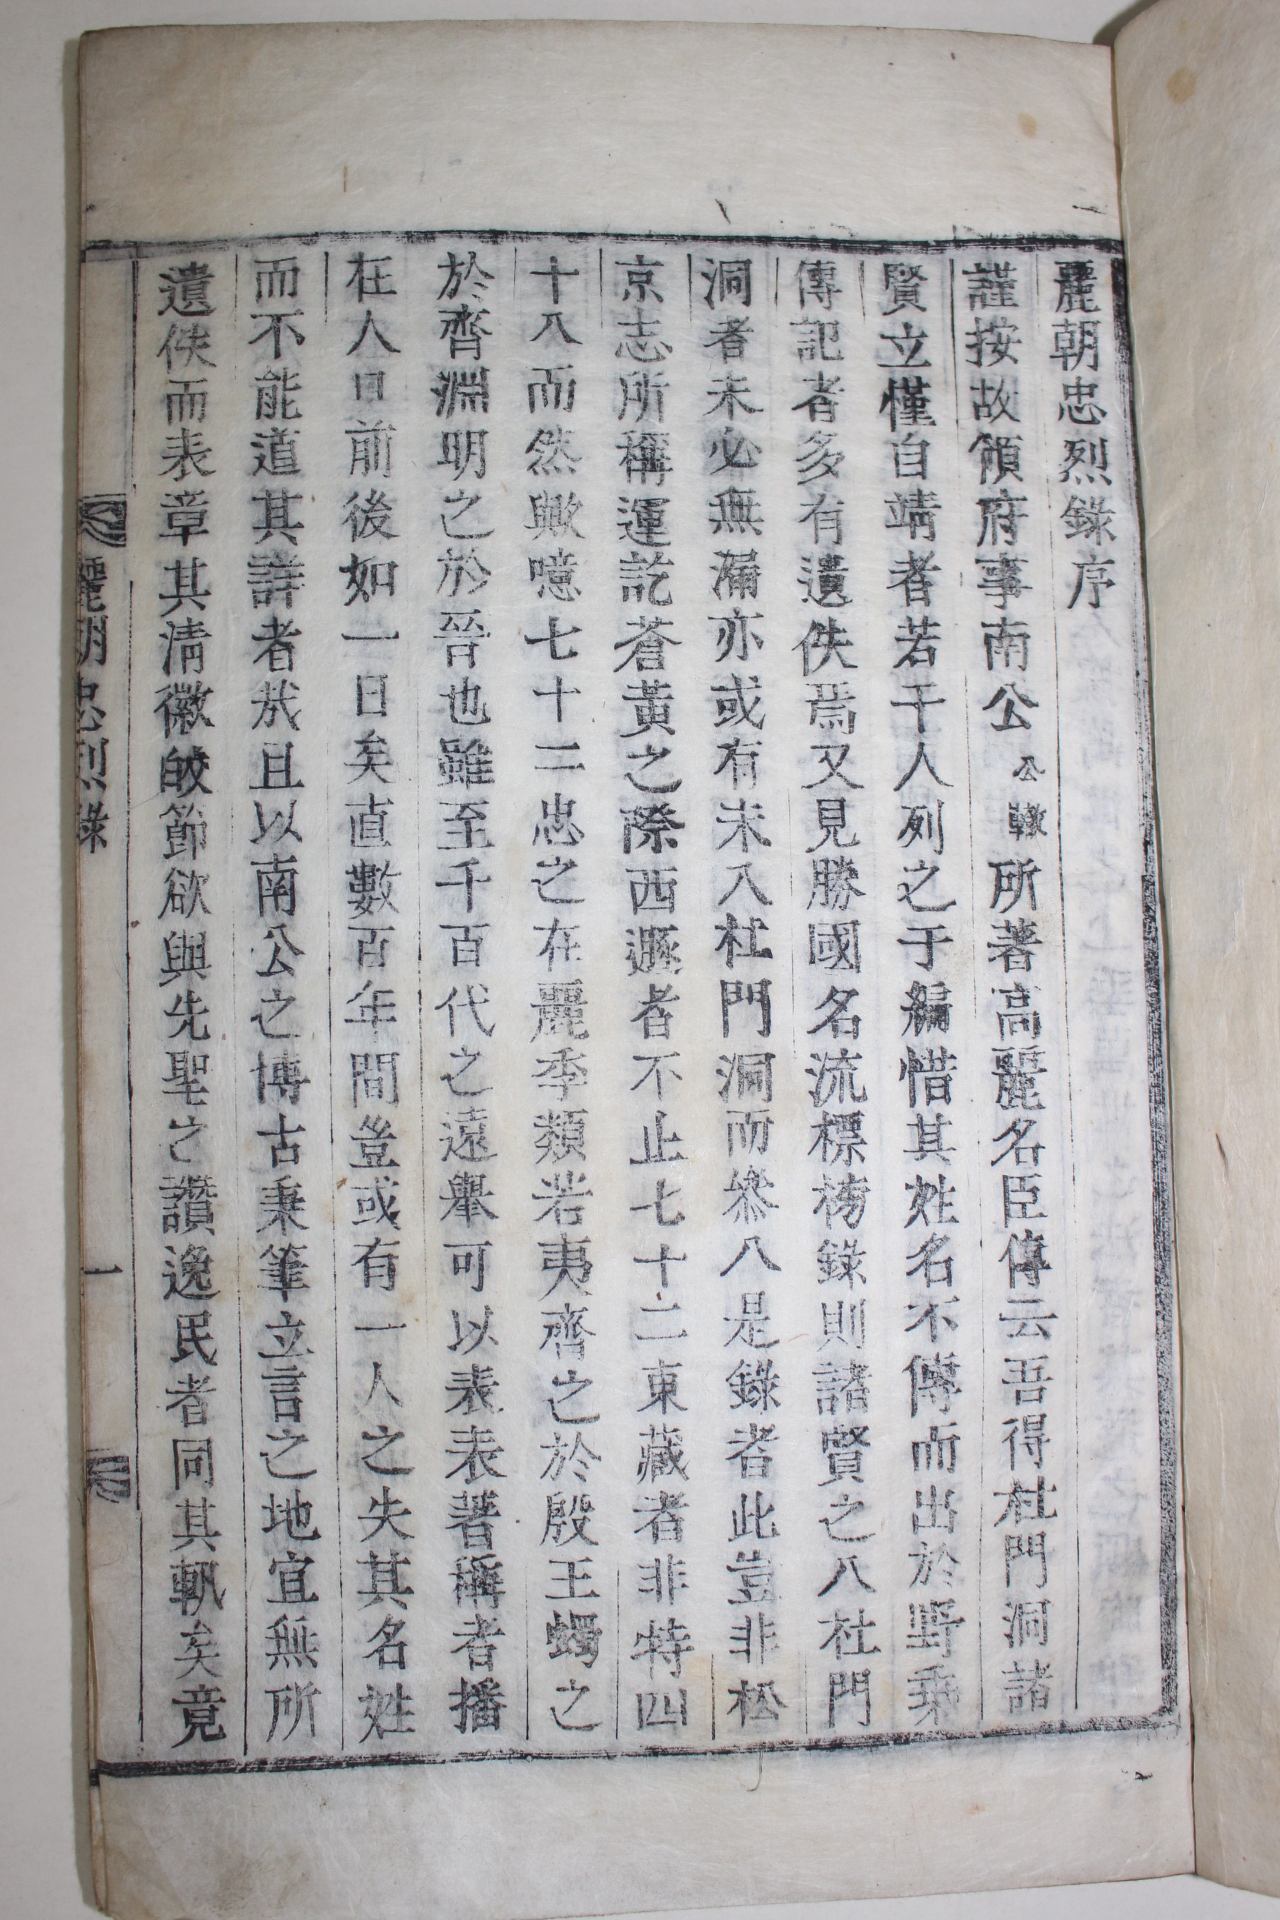 麗朝忠烈錄序
謹按故領府事南公公轍所著高麗名臣傳云吾得杜門洞諸
賢立慬自靖者若干人列之于編惜其姓名不傳而出於野乘
傳記者多有遺佚焉又見勝國名流標榜錄則諸賢之入杜門
洞者未必無漏亦或有未入杜門洞而叅入是錄者此豈非松
京志所稱運訖蒼黃之際西遯者不止七十二東藏者非特四
十八而然歟噫七十二忠之在麗季類若夷齊之於殷王蠋之
於齊淵明之於晉也雖至千百代之遠擧可以表表著稱者播
在人口前後如一日矣直數百年間豈或有一人之失其名姓
而不能道其詳者哉且以南公之博古秉筆立言之地宜無所
遺佚而表章其淸徽皎節欲與先聖之讚逸民者同其軌矣竟
麗朝忠烈錄
一